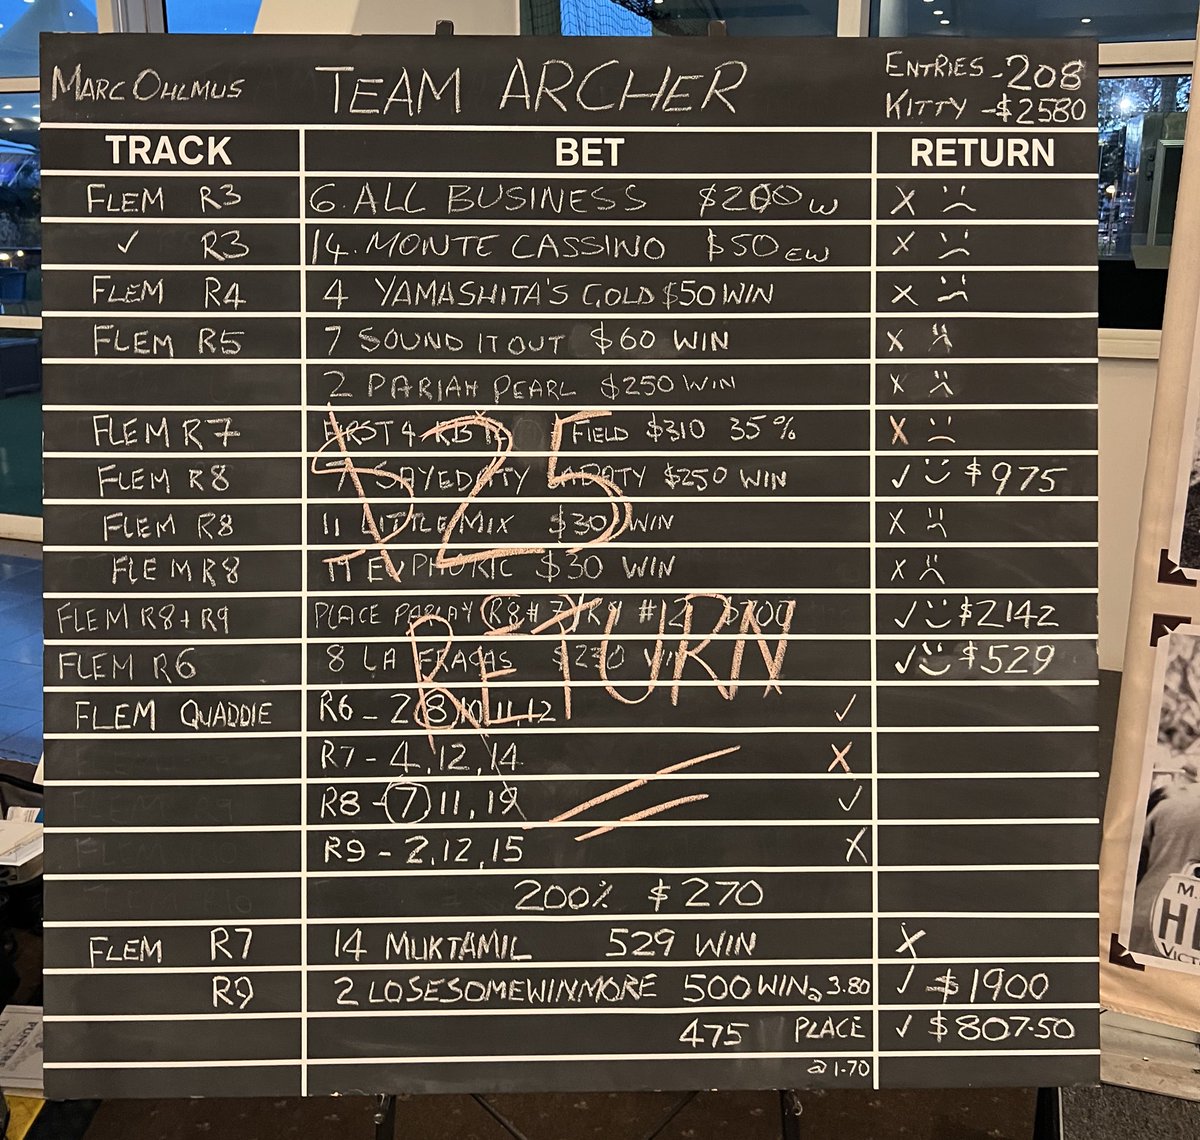 MARC OHLMUS TEAM ARCHER ENTRIES - 208
KITTY - $2580
TRACK BET RETURN
FLEM R3 6. ALL BUSINESS $200 W X
✓ R3 14. MONTE CASSINO $50 EW X
FLEM R4 4 YAMASHITA'S GOLD $50 WIN X
FLEM R5 7 SOUND IT OUT $60 WIN X
2 PARIAH PEARL $250 WIN X
FLEM R7 FIRST 4 FIELD $310 35% X
FLEM R8 7 SAYEDATY SADATY $250 WIN ✓ $975
FLEM R8 11 LITTLE MIX $30 WIN X
FLEM R8 EUPHORIC $30 WIN X
FLEM R8 + R9 PLACE PARLAY R8 #7 / R9 #12 $700 ✓ $2142
FLEM R6 8 LA FRACAS $230 WIN ✓ $529
$25
RETURN
FLEM QUADDIE R6 - 2 8 10 11, 12 ✓
R7 - 4, 12, 14 X
R8 - 7 11, 19 ✓
R9 - 2, 12, 15 X
200% $270
FLEM R7 14 MUKTAMIL 529 WIN X
R9 2 LOSESOMEWINMORE 500 WIN @ 3.80 ✓ $1900
475 PLACE ✓ $807.50
@ 1.70